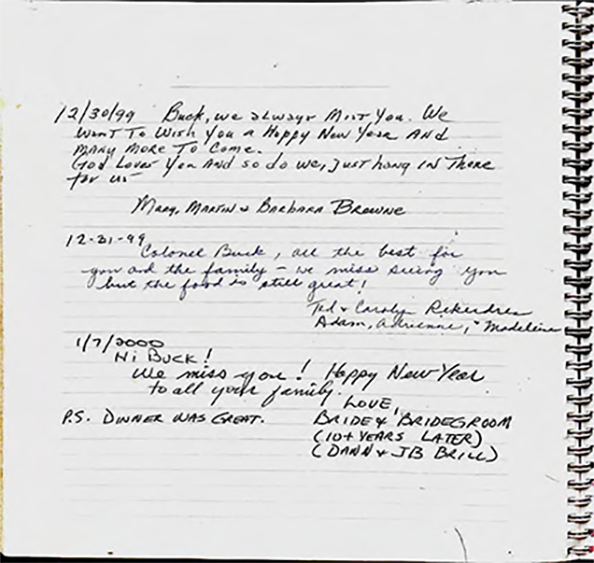 12/30/99 Buck, we always Miss You. We
want To Wish You a Happy New Year And
many more To Come.
God Loves You And so do we, Just hang in There
for us
Mary, Martin & Barbara Browne
12-31-99
Colonel Buck, all the best for
you and the family - we miss seeing you
but the food is still great!
Ted & Carolyn
Adam, Adrienne, & Madeline
1/7/2000
Hi Buck!
We miss you! Happy New Year
to all your family.
Love,
P.S. Dinner was Great. Bride & Bridegroom
(10+ years later)
(Dann & JB Brill)